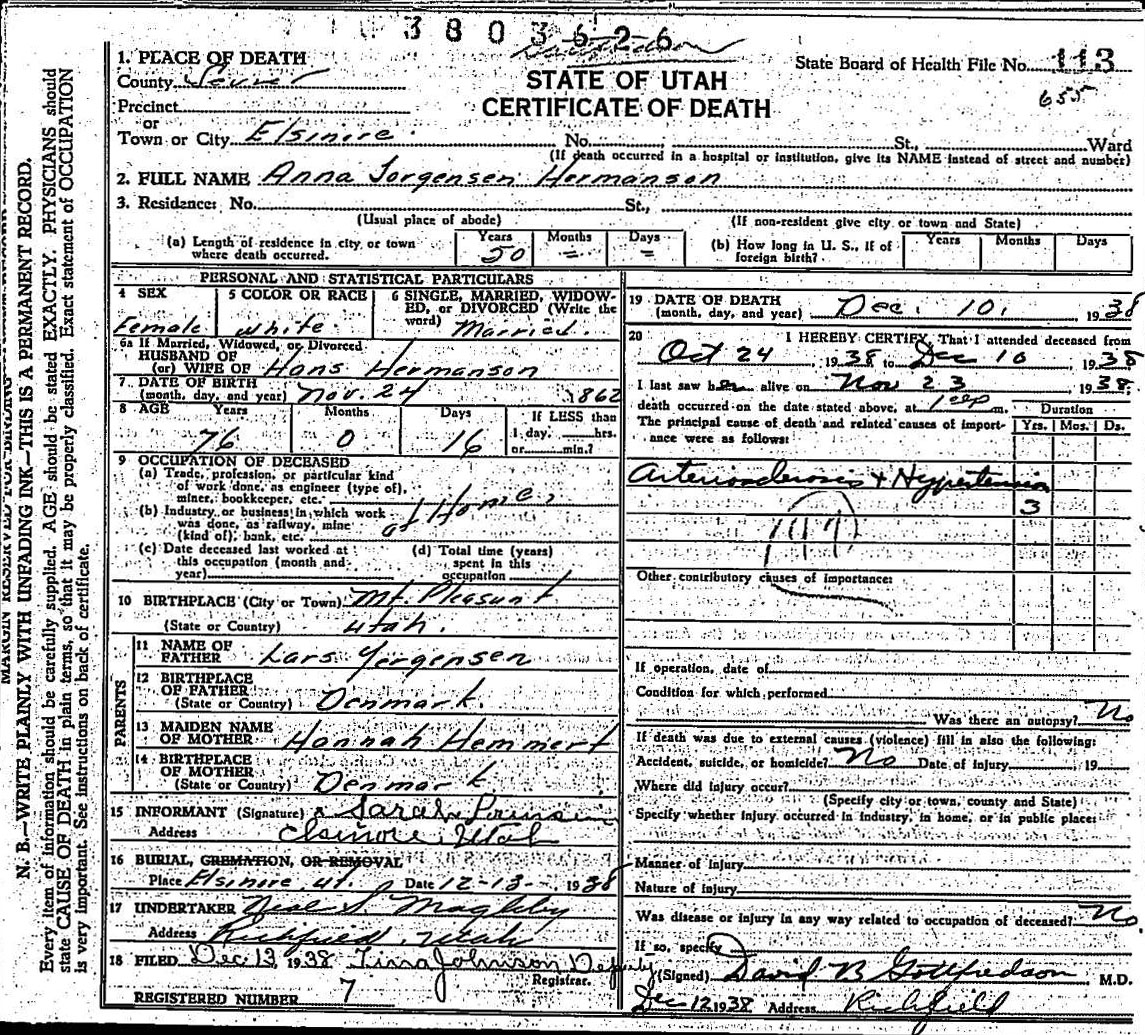 3803626
1. PLACE OF DEATH
County Sevier
Precinct
or
Town or City Elsinore
STATE OF UTAH
CERTIFICATE OF DEATH
State Board of Health File No. 113
655
No. St., Ward
(If death occurred in a hospital or institution, give its NAME instead of street and number)
2. FULL NAME Anna Jorgensen Hermanson
3. Residence: No. St.,
(Usual place of abode) (If non-resident give city or town and State)
(a) Length of residence in city or town where death occurred. Years 50 Months - Days -
(b) How long in U. S., if of foreign birth? Years Months Days
PERSONAL AND STATISTICAL PARTICULARS
4 SEX Female
5 COLOR OR RACE white
6 SINGLE, MARRIED, WIDOWED, or DIVORCED (Write the word) Married.
6a If Married, Widowed, or Divorced
HUSBAND OF
(or) WIFE OF Hans Hermanson
7 DATE OF BIRTH
(month, day, and year) Nov. 24 1862
8 AGE Years 76 Months 0 Days 16 If LESS than 1 day, hrs. or min.?
9 OCCUPATION OF DECEASED
(a) Trade, profession, or particular kind of work done, as engineer (type of), miner, bookkeeper, etc.
at Home
(b) Industry or business in which work was done, as railway, mine (kind of), bank, etc.
(c) Date deceased last worked at this occupation (month and year)
(d) Total time (years) spent in this occupation
10 BIRTHPLACE (City or Town) Mt. Pleasunt
(State or Country) Utah.
PARENTS
11 NAME OF FATHER Lars Yorgensen
12 BIRTHPLACE OF FATHER
(State or Country) Denmark.
13 MAIDEN NAME OF MOTHER Hannah Hemmert
14 BIRTHPLACE OF MOTHER
(State or Country) Denmark
15 INFORMANT (Signature) Sarah
Address Elsinore, Utah
16 BURIAL, CREMATION, OR REMOVAL
Place Elsinore, Ut. Date 12-13- 1938
17 UNDERTAKER Neal S. Magleby
Address Richfield, Utah
18 FILED Dec 13 1938 Tina Johnson Deputy
Registrar.
REGISTERED NUMBER 7
19 DATE OF DEATH
(month, day, and year) Dec. 10, 1938
20 I HEREBY CERTIFY, That I attended deceased from
Oct 24, 1938 to Dec 10 1938
I last saw her alive on Nov 23 1938,
death occurred on the date stated above, at m.
Duration
Yrs. Mos. Ds.
The principal cause of death and related causes of importance were as follows:
Arteriosclerosis & Hypertension
3
Other contributory causes of importance:
If operation, date of
Condition for which performed
Was there an autopsy? No
If death was due to external causes (violence) fill in also the following:
Accident, suicide, or homicide? No Date of injury 19
Where did injury occur?
(Specify city or town, county and State)
Specify whether injury occurred in industry, in home, or in public place:
Manner of injury
Nature of injury
Was disease or injury in any way related to occupation of deceased? No
If so, specify
(Signed) David B Gottfredson M.D.
Dec 12 1938 Address Richfield
MARGIN RESERVED FOR BINDING
N. B.—WRITE PLAINLY WITH UNFADING INK—THIS IS A PERMANENT RECORD.
Every item of information should be carefully supplied. AGE should be stated EXACTLY. PHYSICIANS should
state CAUSE OF DEATH in plain terms, so that it may be properly classified. Exact statement of OCCUPATION
is very important. See instructions on back of certificate.